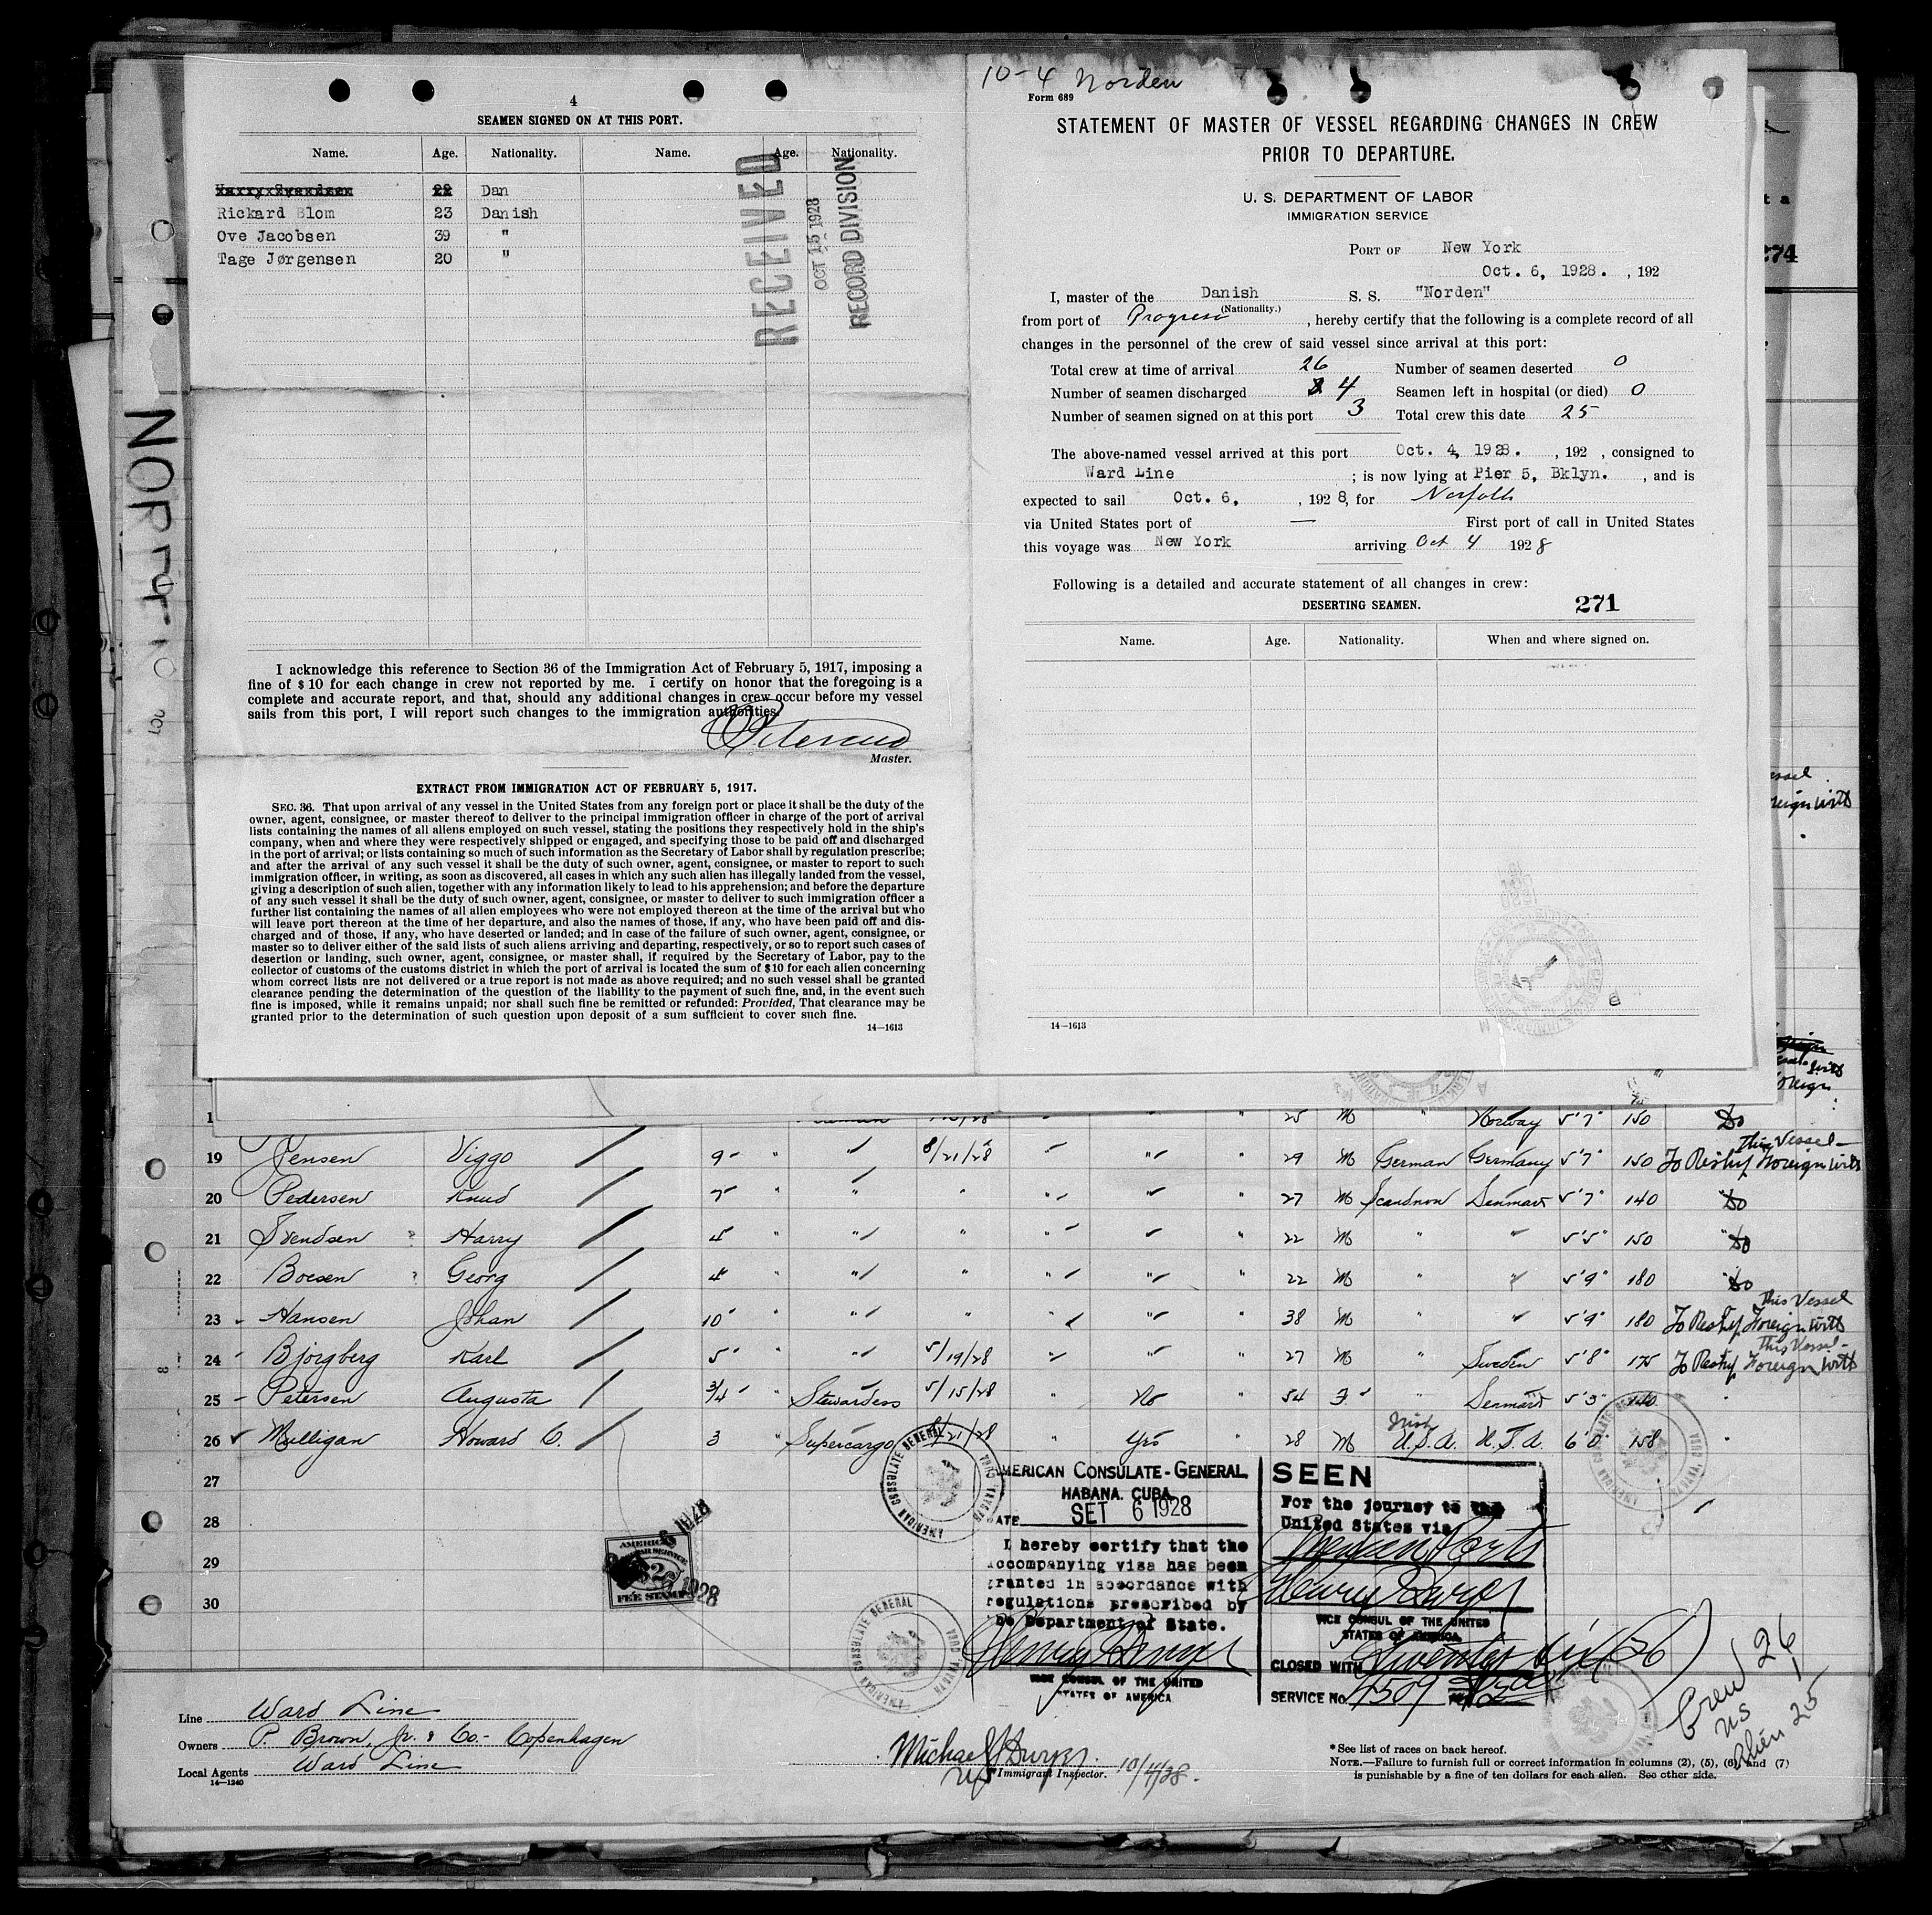 4
SEAMEN SIGNED ON AT THIS PORT.
Name. Age. Nationality. Name. Age. Nationality.
22 Dan
Rickard Blom 23 Danish
Ove Jacobsen 39 "
Tage Jørgensen 20 "
RECEIVED
OCT 15 1928
RECORD DIVISION
I acknowledge this reference to Section 36 of the Immigration Act of February 5, 1917, imposing a
fine of $10 for each change in crew not reported by me. I certify on honor that the foregoing is a
complete and accurate report, and that, should any additional changes in crew occur before my vessel
sails from this port, I will report such changes to the immigration authorities.
Master.
EXTRACT FROM IMMIGRATION ACT OF FEBRUARY 5, 1917.
SEC. 36. That upon arrival of any vessel in the United States from any foreign port or place it shall be the duty of the
owner, agent, consignee, or master thereof to deliver to the principal immigration officer in charge of the port of arrival
lists containing the names of all aliens employed on such vessel, stating the positions they respectively hold in the ship's
company, when and where they were respectively shipped or engaged, and specifying those to be paid off and discharged
in the port of arrival; or lists containing so much of such information as the Secretary of Labor shall by regulation prescribe;
and after the arrival of any such vessel it shall be the duty of such owner, agent, consignee, or master to report to such
immigration officer, in writing, as soon as discovered, all cases in which any such alien has illegally landed from the vessel,
giving a description of such alien, together with any information likely to lead to his apprehension; and before the departure
of any such vessel it shall be the duty of such owner, agent, consignee, or master to deliver to such immigration officer a
further list containing the names of all alien employees who were not employed thereon at the time of the arrival but who
will leave port thereon at the time of her departure, and also the names of those, if any, who have been paid off and dis-
charged and of those, if any, who have deserted or landed; and in case of the failure of such owner, agent, consignee, or
master so to deliver either of the said lists of such aliens arriving and departing, respectively, or so to report such cases of
desertion or landing, such owner, agent, consignee, or master shall, if required by the Secretary of Labor, pay to the
collector of customs of the customs district in which the port of arrival is located the sum of $10 for each alien concerning
whom correct lists are not delivered or a true report is not made as above required; and no such vessel shall be granted
clearance pending the determination of the question of the liability to the payment of such fine, and, in the event such
fine is imposed, while it remains unpaid; nor shall such fine be remitted or refunded: Provided, That clearance may be
granted prior to the determination of such question upon deposit of a sum sufficient to cover such fine.
14—1613
10-4 Norden
Form 689
STATEMENT OF MASTER OF VESSEL REGARDING CHANGES IN CREW
PRIOR TO DEPARTURE.
U. S. DEPARTMENT OF LABOR
IMMIGRATION SERVICE
PORT OF New York
Oct. 6, 1928. , 192
I, master of the Danish S. S. "Norden"
(Nationality.)
from port of Progreso , hereby certify that the following is a complete record of all
changes in the personnel of the crew of said vessel since arrival at this port:
Total crew at time of arrival 26 Number of seamen deserted 0
Number of seamen discharged 4 Seamen left in hospital (or died) 0
Number of seamen signed on at this port 3 Total crew this date 25
The above-named vessel arrived at this port Oct. 4, 1928. , 192 , consigned to
Ward Line ; is now lying at Pier 5, Bklyn. , and is
expected to sail Oct. 6, , 1928, for Norfolk
via United States port of — First port of call in United States
this voyage was New York arriving Oct 4 1928
Following is a detailed and accurate statement of all changes in crew:
DESERTING SEAMEN. 271
Name. Age. Nationality. When and where signed on.
14—1613
274
25 M Norway 5'7" 150 Do
19 Jensen Viggo 9 " " 8/21/28 " " 29 M German Germany 5'7" 150 To Reship Foreign with This Vessel
20 Pedersen Knud 7 " " " " " 27 M Scandnvn Denmark 5'7" 140 Do
21 Svendsen Harry 5 " " " " " " 22 M " " 5'5" 150 Do
22 Boesen Georg 4 " " " " " " 22 M " " 5'9" 180 Do
23 Hansen Johan 10 " " " " " 38 M " " 5'9" 180 To Reship Foreign with This Vessel
24 Bjorgberg Karl 5 " " 5/19/28 " " " 27 M " Sweden 5'8" 175 To Reship Foreign with This Vessel
25 Petersen Augusta 3/4 " Stewardess 5/15/28 " No " 54 F Denmark 5'3" 140 "
26 Mulligan Howard C. 3 " Supercargo 8/21/28 " Yes " 28 M Irish U.S.A. U.S.A. 6'0" 158 "
27
28
29
30
AMERICAN CONSULATE-GENERAL
HABANA, CUBA
DATE SET 6 1928
I hereby certify that the
accompanying visa has been
granted in accordance with
regulations prescribed by
the Department of State.
VICE CONSUL OF THE UNITED
STATES OF AMERICA
SEEN
For the journey to the
United States via
Mexican Ports
VICE CONSUL OF THE UNITED
STATES OF AMERICA
CLOSED WITH Twenty six (26)
SERVICE No. 4507
AMERICAN CONSULATE GENERAL HABANA, CUBA
FEE STAMP
Crew 26
US 1
Alien 25
Line Ward Line
Owners P. Brown, Jr. & Co. - Copenhagen
Local Agents Ward Line
14—1240
Immigrant Inspector. 10/4/28.
*See list of races on back hereof.
NOTE.—Failure to furnish full or correct information in columns (2), (5), (6), and (7)
is punishable by a fine of ten dollars for each alien. See other side.